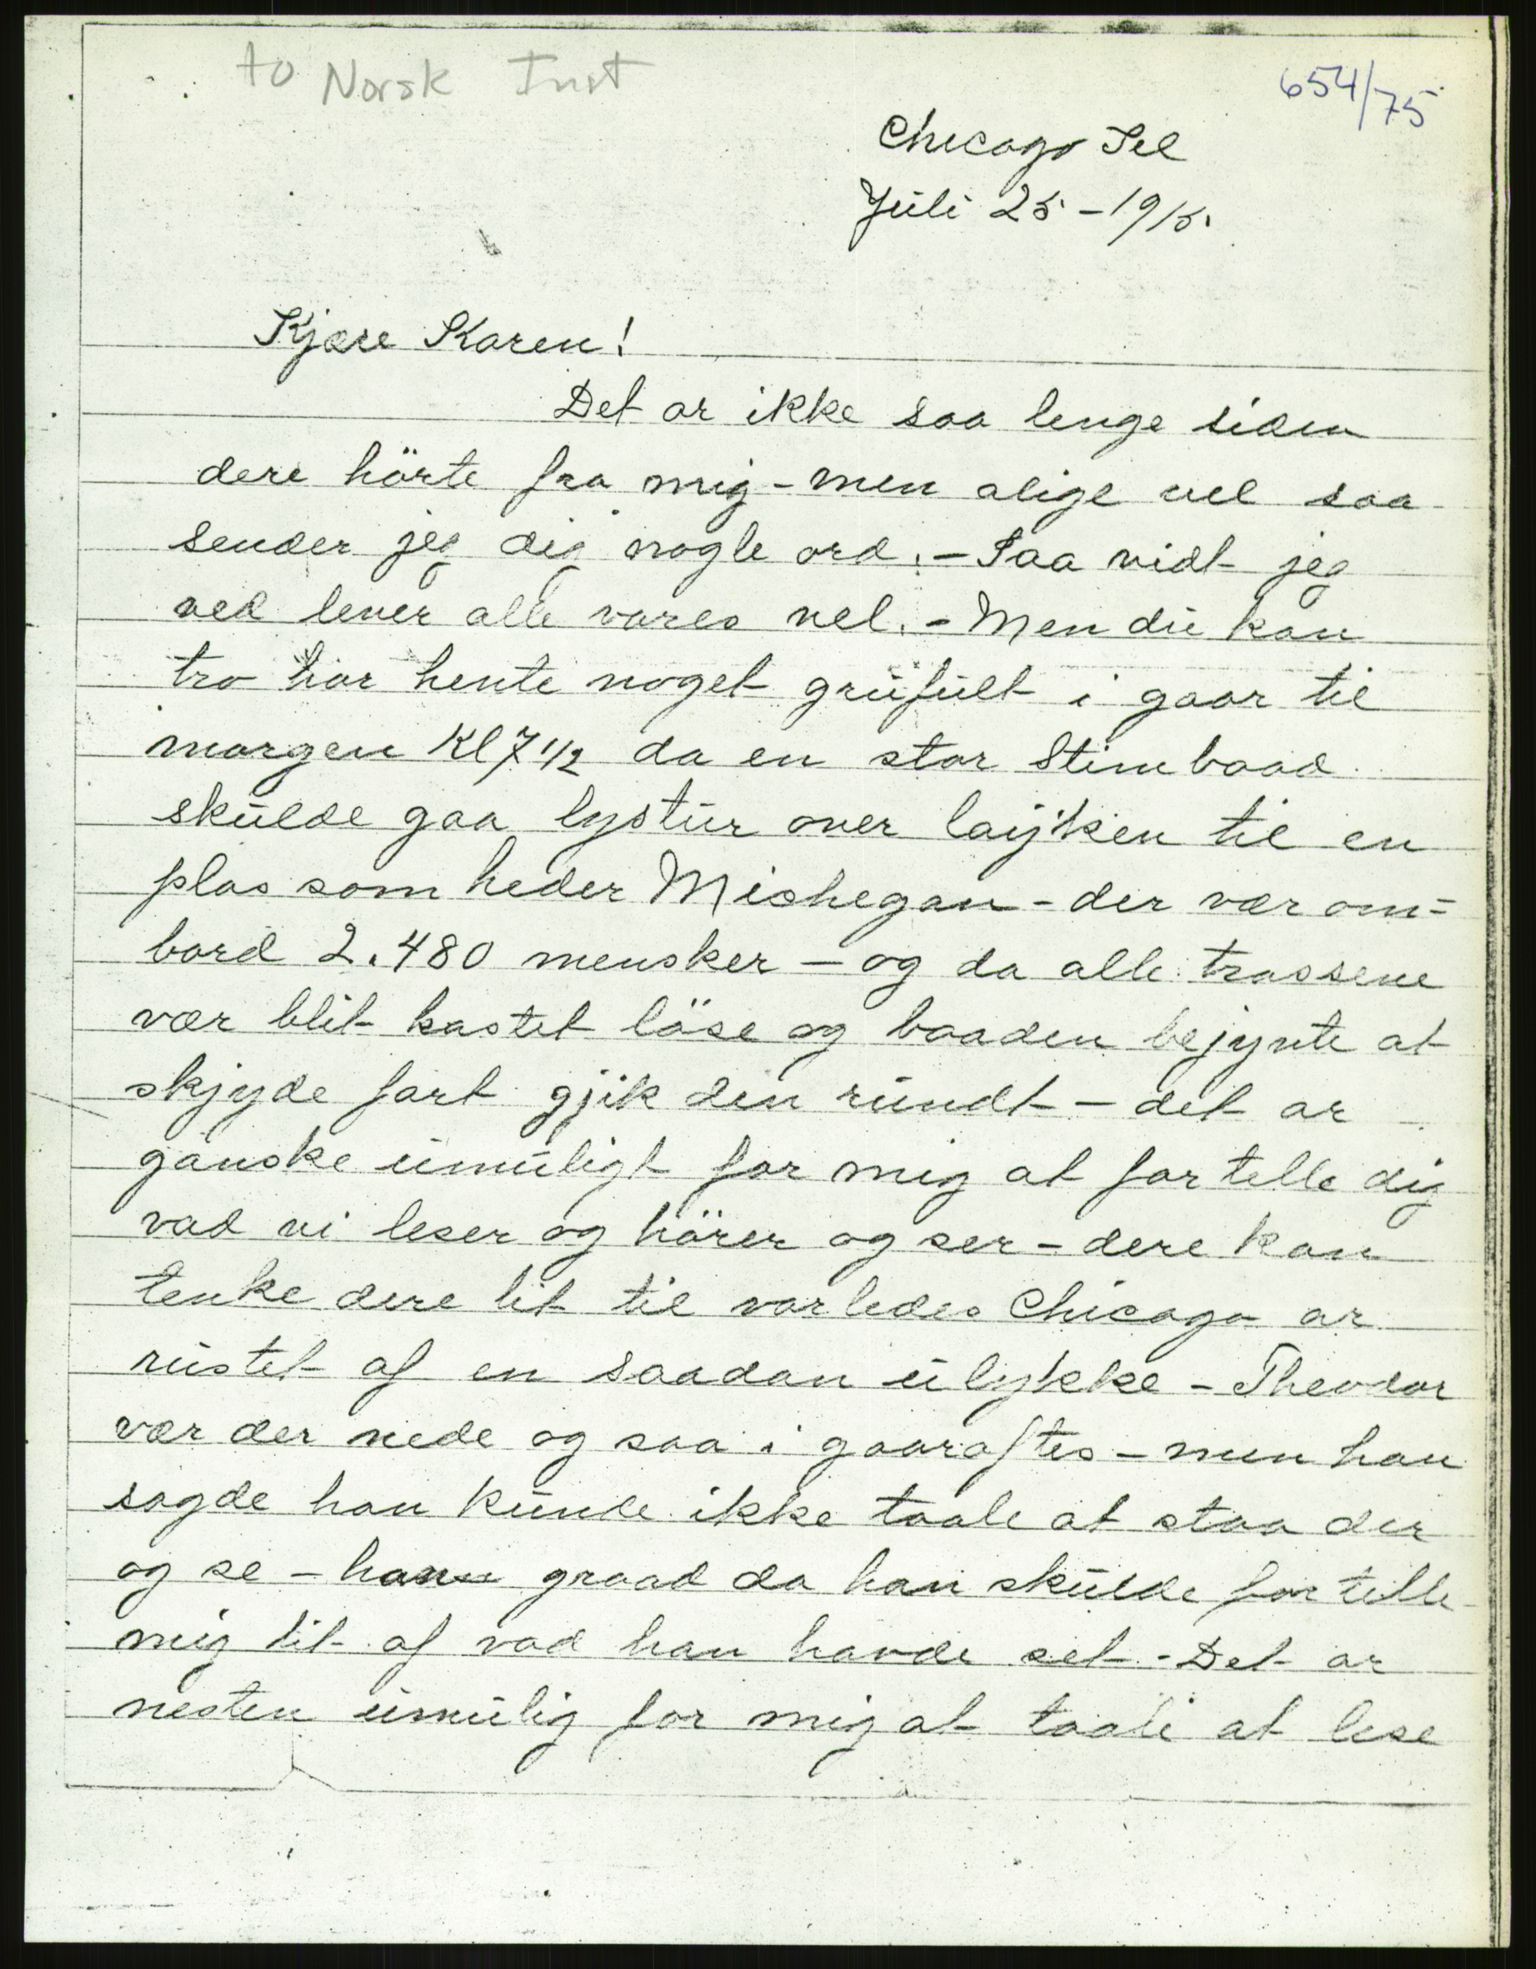 to Norsk Inst
654/75
Chicago Ill
Juli 25 - 1915.
Kjære Karen!
Det ar ikke saa lenge siden
dere hörte fra mig - men alige vel saa
sender jeg dig nogle ord. - Saa vidt jeg
ved lever alle vores vel. - Men du kan
tro har hente noget grufult i gaar til
morgen Kl 7 1/2 da en stor Stimbaad
skulde gaa lystur over laijken til en
plas som heder Mishegan - der vær om=
bord 2.480 mensker - og da alle trossene
vær blit kastet löse og baaden bejynte at
skjyde fart gjik den rundt - det ar
ganske umuligt for mig at for telle dig
vad vi leser og hörer og ser - dere kan
tenke dere lit til vorledes Chicago ar
rustet af en saadan ulykke - Theodor
vær der nede og saa i gaaraftes - men han
sagde han kunde ikke taale at staa der
og se - han graad da han skulde for telle
mig lit af vad han havde set. - Det ar
nesten umulig for mig at taale at lese